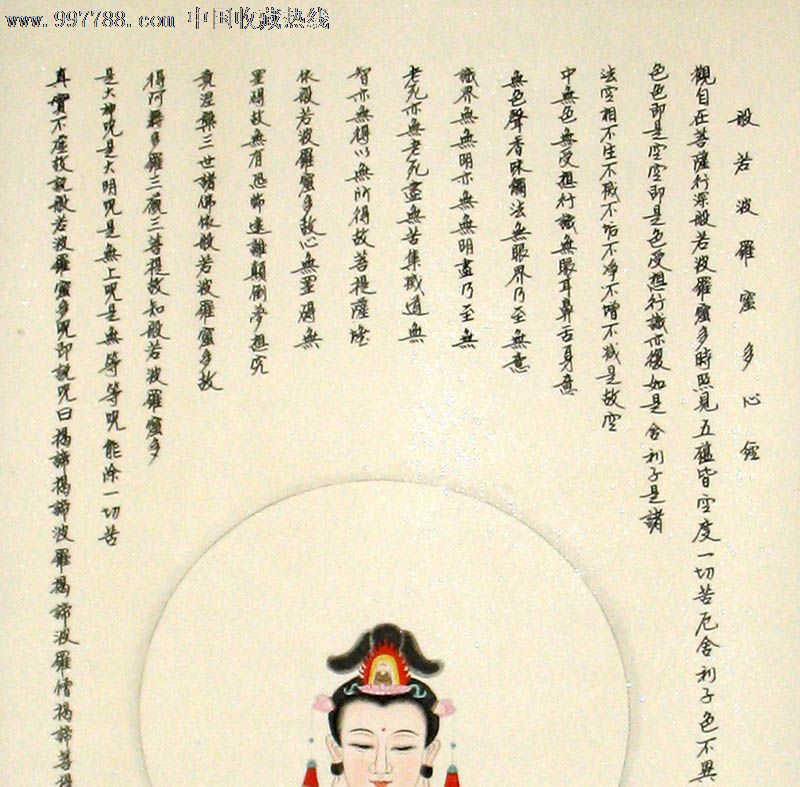 www.997788.com 中国收藏热线
般若波羅蜜多心經
觀自在菩薩行深般若波羅蜜多時照見五蘊皆空度一切苦厄舍利子色不異
色色即是空空即是色受想行識亦復如是舍利子是諸
法空相不生不滅不垢不净不增不減是故空
中無色無受想行識無眼耳鼻舌身意
無色聲香味觸法無眼界乃至無意
識界無無明亦無無明盡乃至無
老死亦無老死盡無苦集滅道無
智亦無得以無所得故菩提薩埵
依般若波羅蜜多故心無罣礙無
罣礙故無有恐怖遠離顛倒夢想究
竟涅槃三世諸佛依般若波羅蜜多故
得阿耨多羅三藐三菩提故知般若波羅蜜多
是大神咒是大明咒是無上咒是無等等咒能除一切苦
真實不虛故說般若波羅蜜多咒即說咒曰揭諦揭諦波羅揭諦波羅僧揭諦菩提